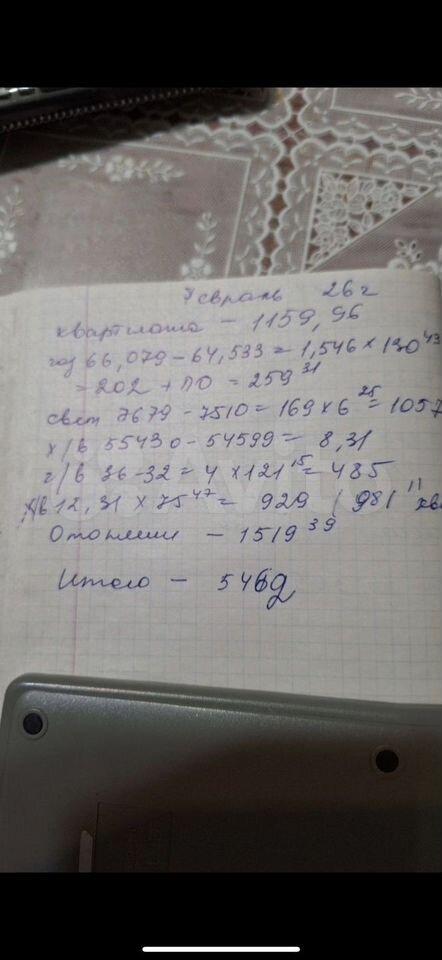 Февраль 26г
Квартплата - 1159,96
газ 66,079 - 64,533 = 1,546 × 130 43
= 202 + ПО = 259 31
свет 7679 - 7510 = 169 × 6 25 = 1057
х/в 55430 - 54599 = 8,31
г/в 36 - 32 = 4 × 121 15 = 485
х/в 12,31 × 75 47 = 929 / 981 11
Отопление - 1519 39
Итого - 546